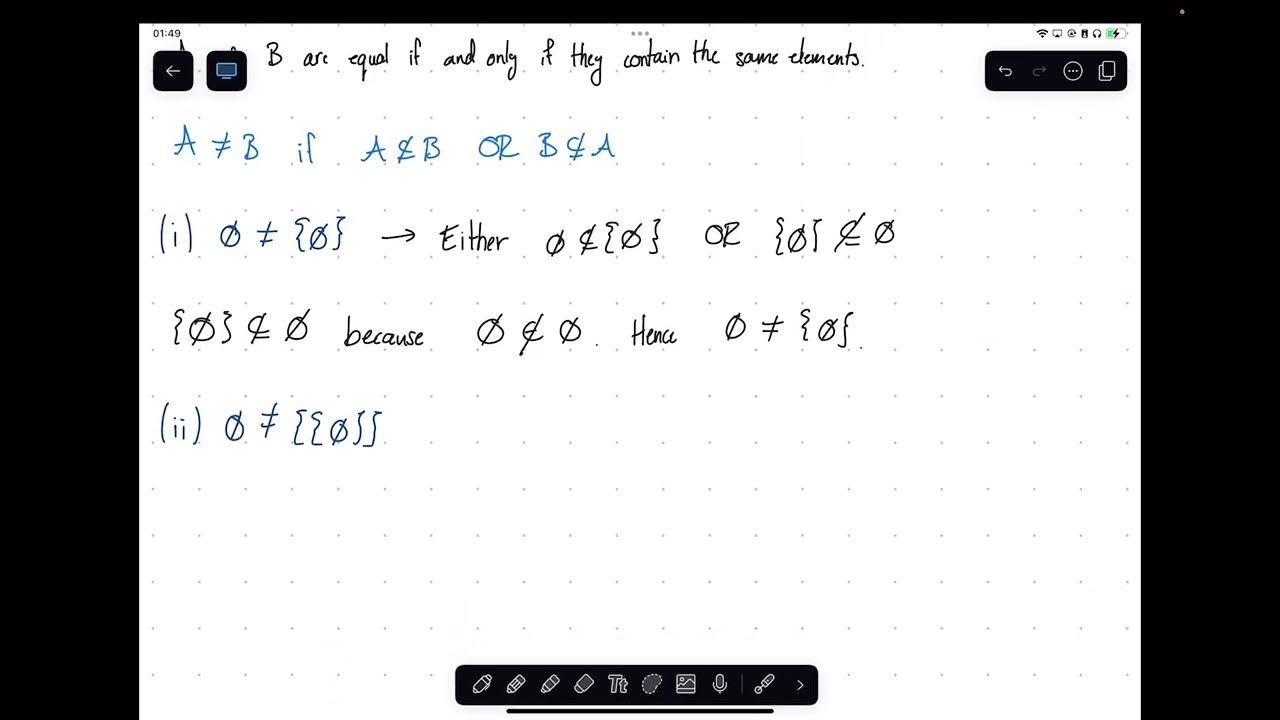 01:49
B are equal if and only if they contain the same elements.
A ≠ B if A ⊈ B OR B ⊈ A
(i) ∅ ≠ {∅} → Either ∅ ⊈ {∅} OR {∅} ⊈ ∅
{∅} ⊈ ∅ because ∅ ∉ ∅. Hence ∅ ≠ {∅}.
(ii) ∅ ≠ {{∅}}
Tt